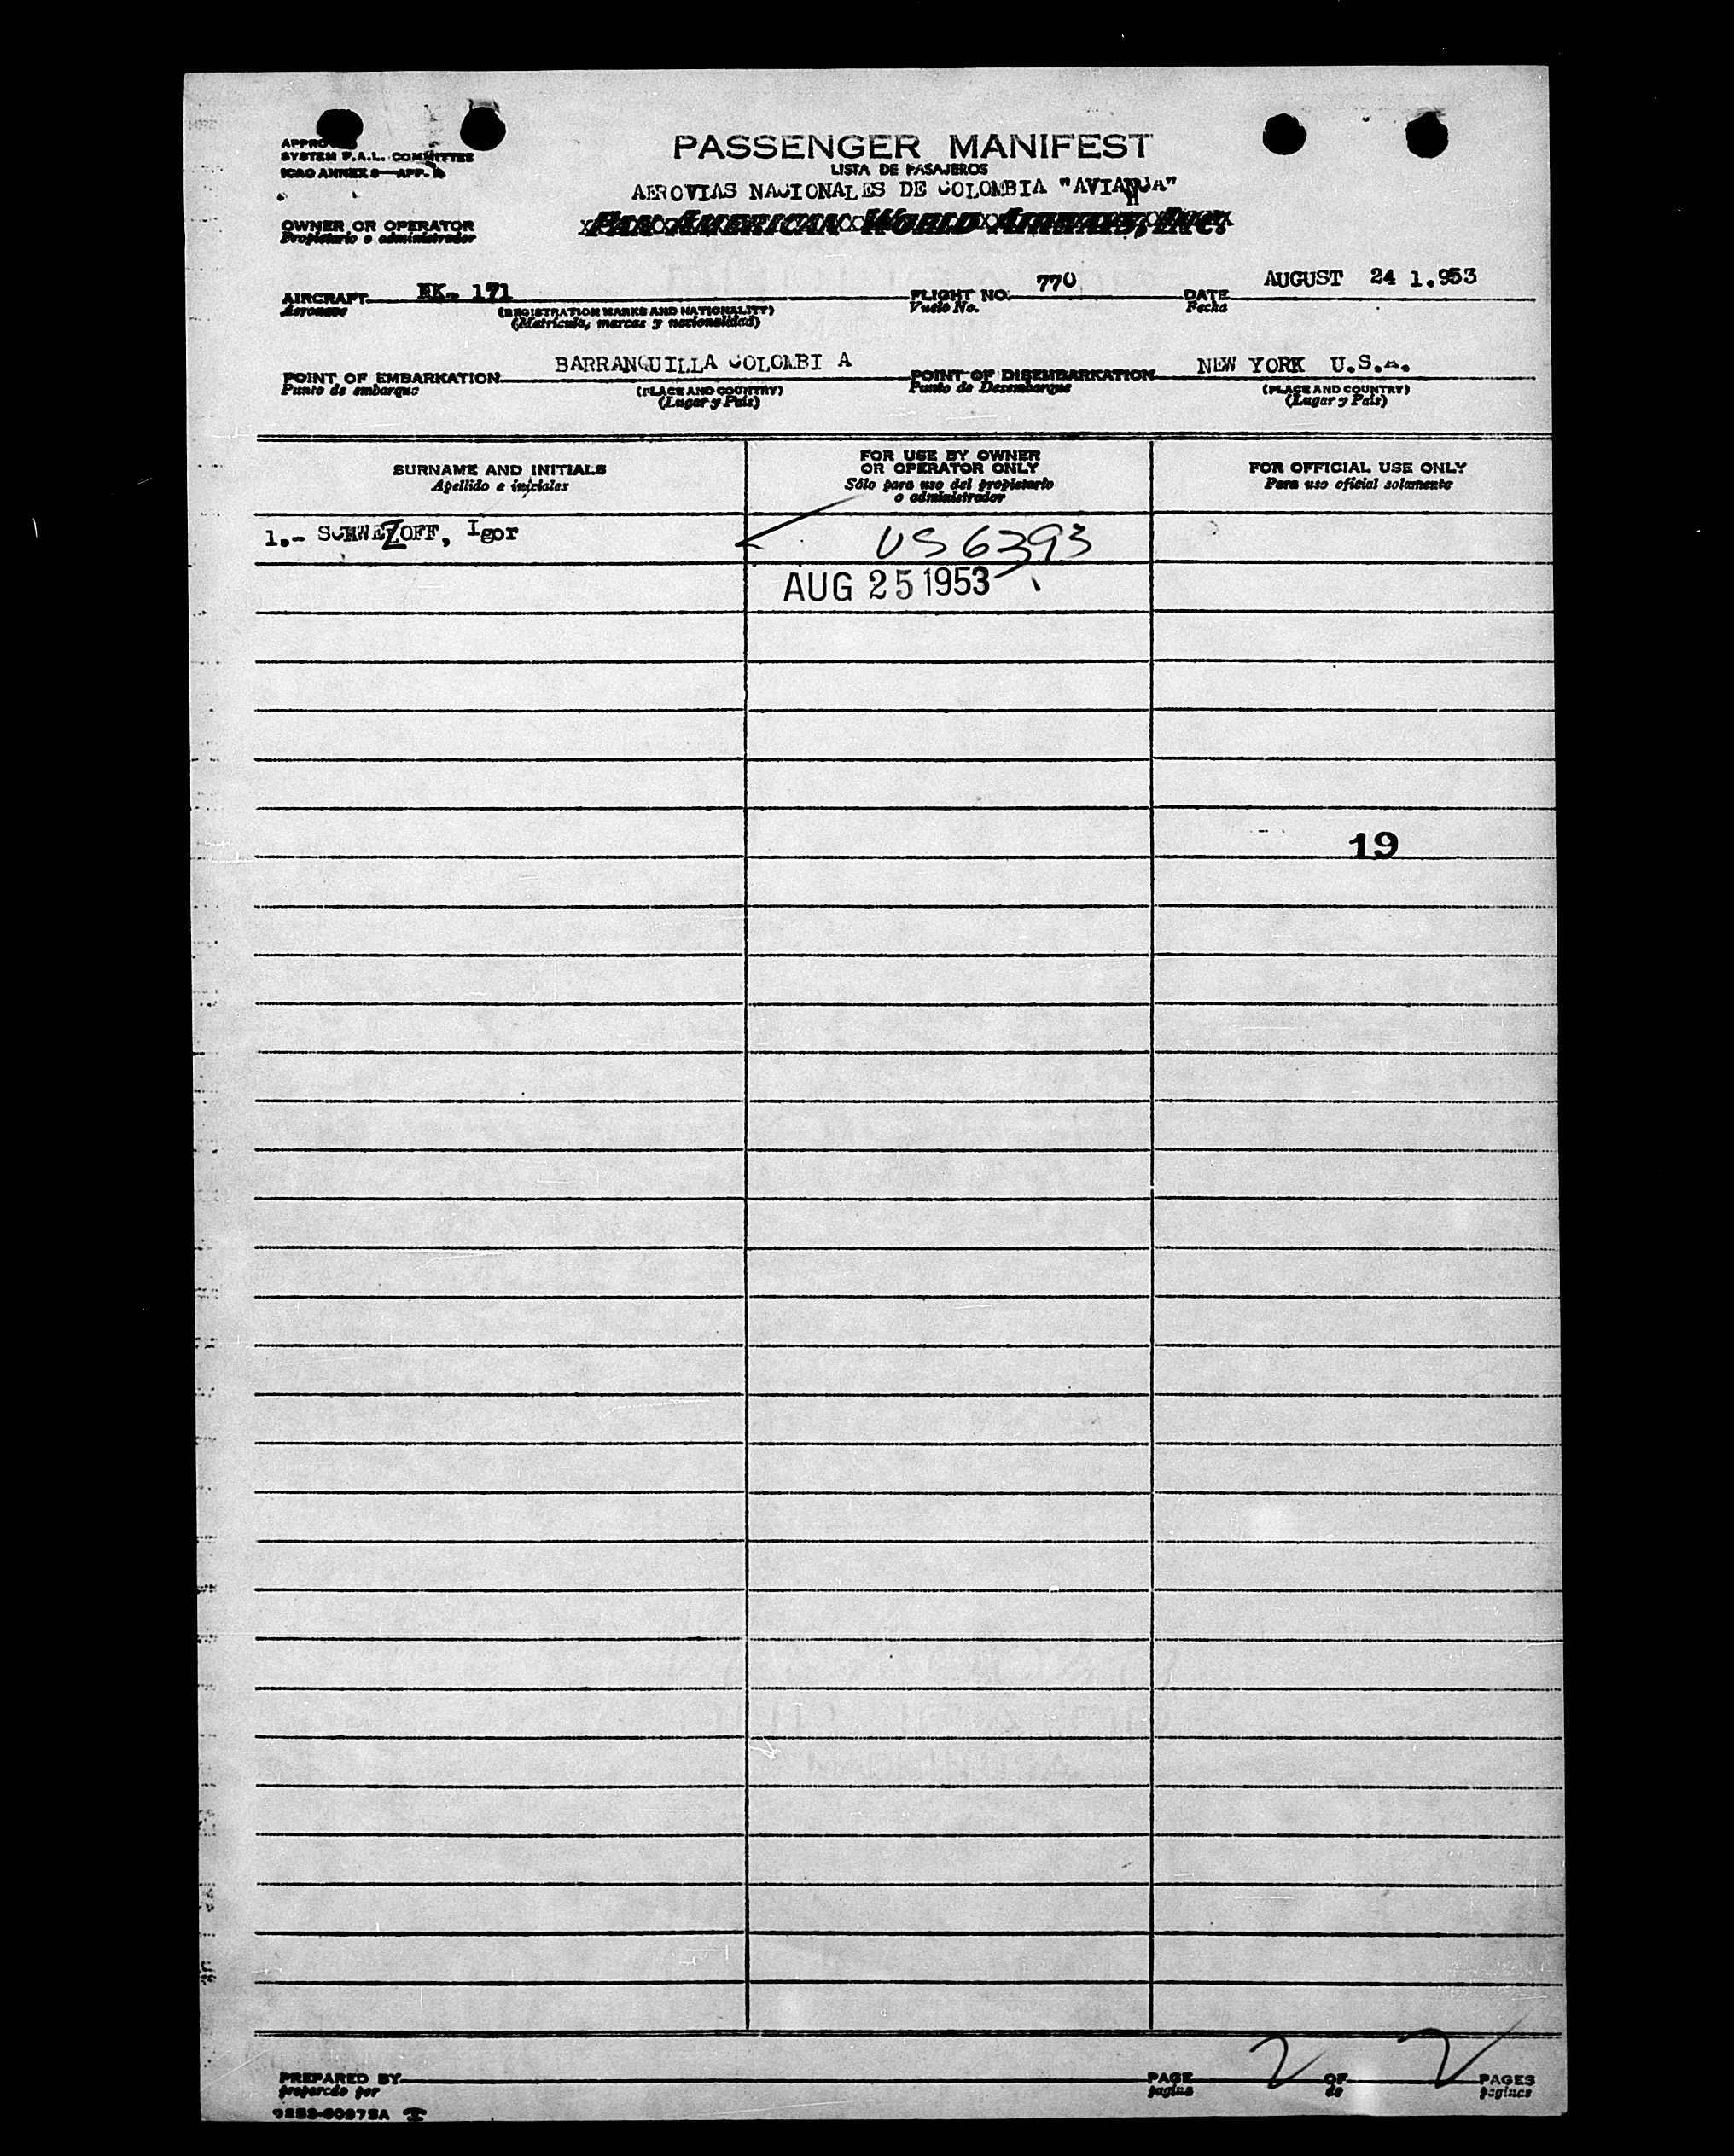 PASSENGER MANIFEST
LISTA DE PASAJEROS
APPROVED
SYSTEM F.A.L. COMMITTEE
ICAO ANNEX 9—APP.
AEROVIAS NACIONALES DE COLOMBIA "AVIANCA"
OWNER OR OPERATOR PAN AMERICAN WORLD AIRWAYS, INC.
Propietario o administrador
AIRCRAFT HK- 171 FLIGHT NO. 770 DATE AUGUST 24 1.953
Aeronave (REGISTRATION MARKS AND NATIONALITY) Vuelo No. Fecha
(Matrícula, marcas y nacionalidad)
POINT OF EMBARKATION BARRANQUILLA COLOMBI A POINT OF DISEMBARKATION NEW YORK U.S.A.
Punto de embarque (PLACE AND COUNTRY) Punto de Desembarque (PLACE AND COUNTRY)
(Lugar y País) (Lugar y País)
SURNAME AND INITIALS
Apellido e iniciales
FOR USE BY OWNER
OR OPERATOR ONLY
Sólo para uso del propietario
o administrador
FOR OFFICIAL USE ONLY
Para uso oficial solamente
1.- SCHWEZOFF, Igor US 6393
AUG 25 1953
19
PREPARED BY PAGE 2 OF 2 PAGES
preparado por pagina de paginas